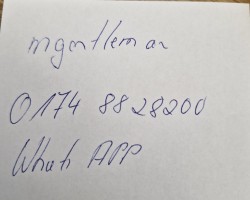 mgentleman
0174 8828200
Whats APP